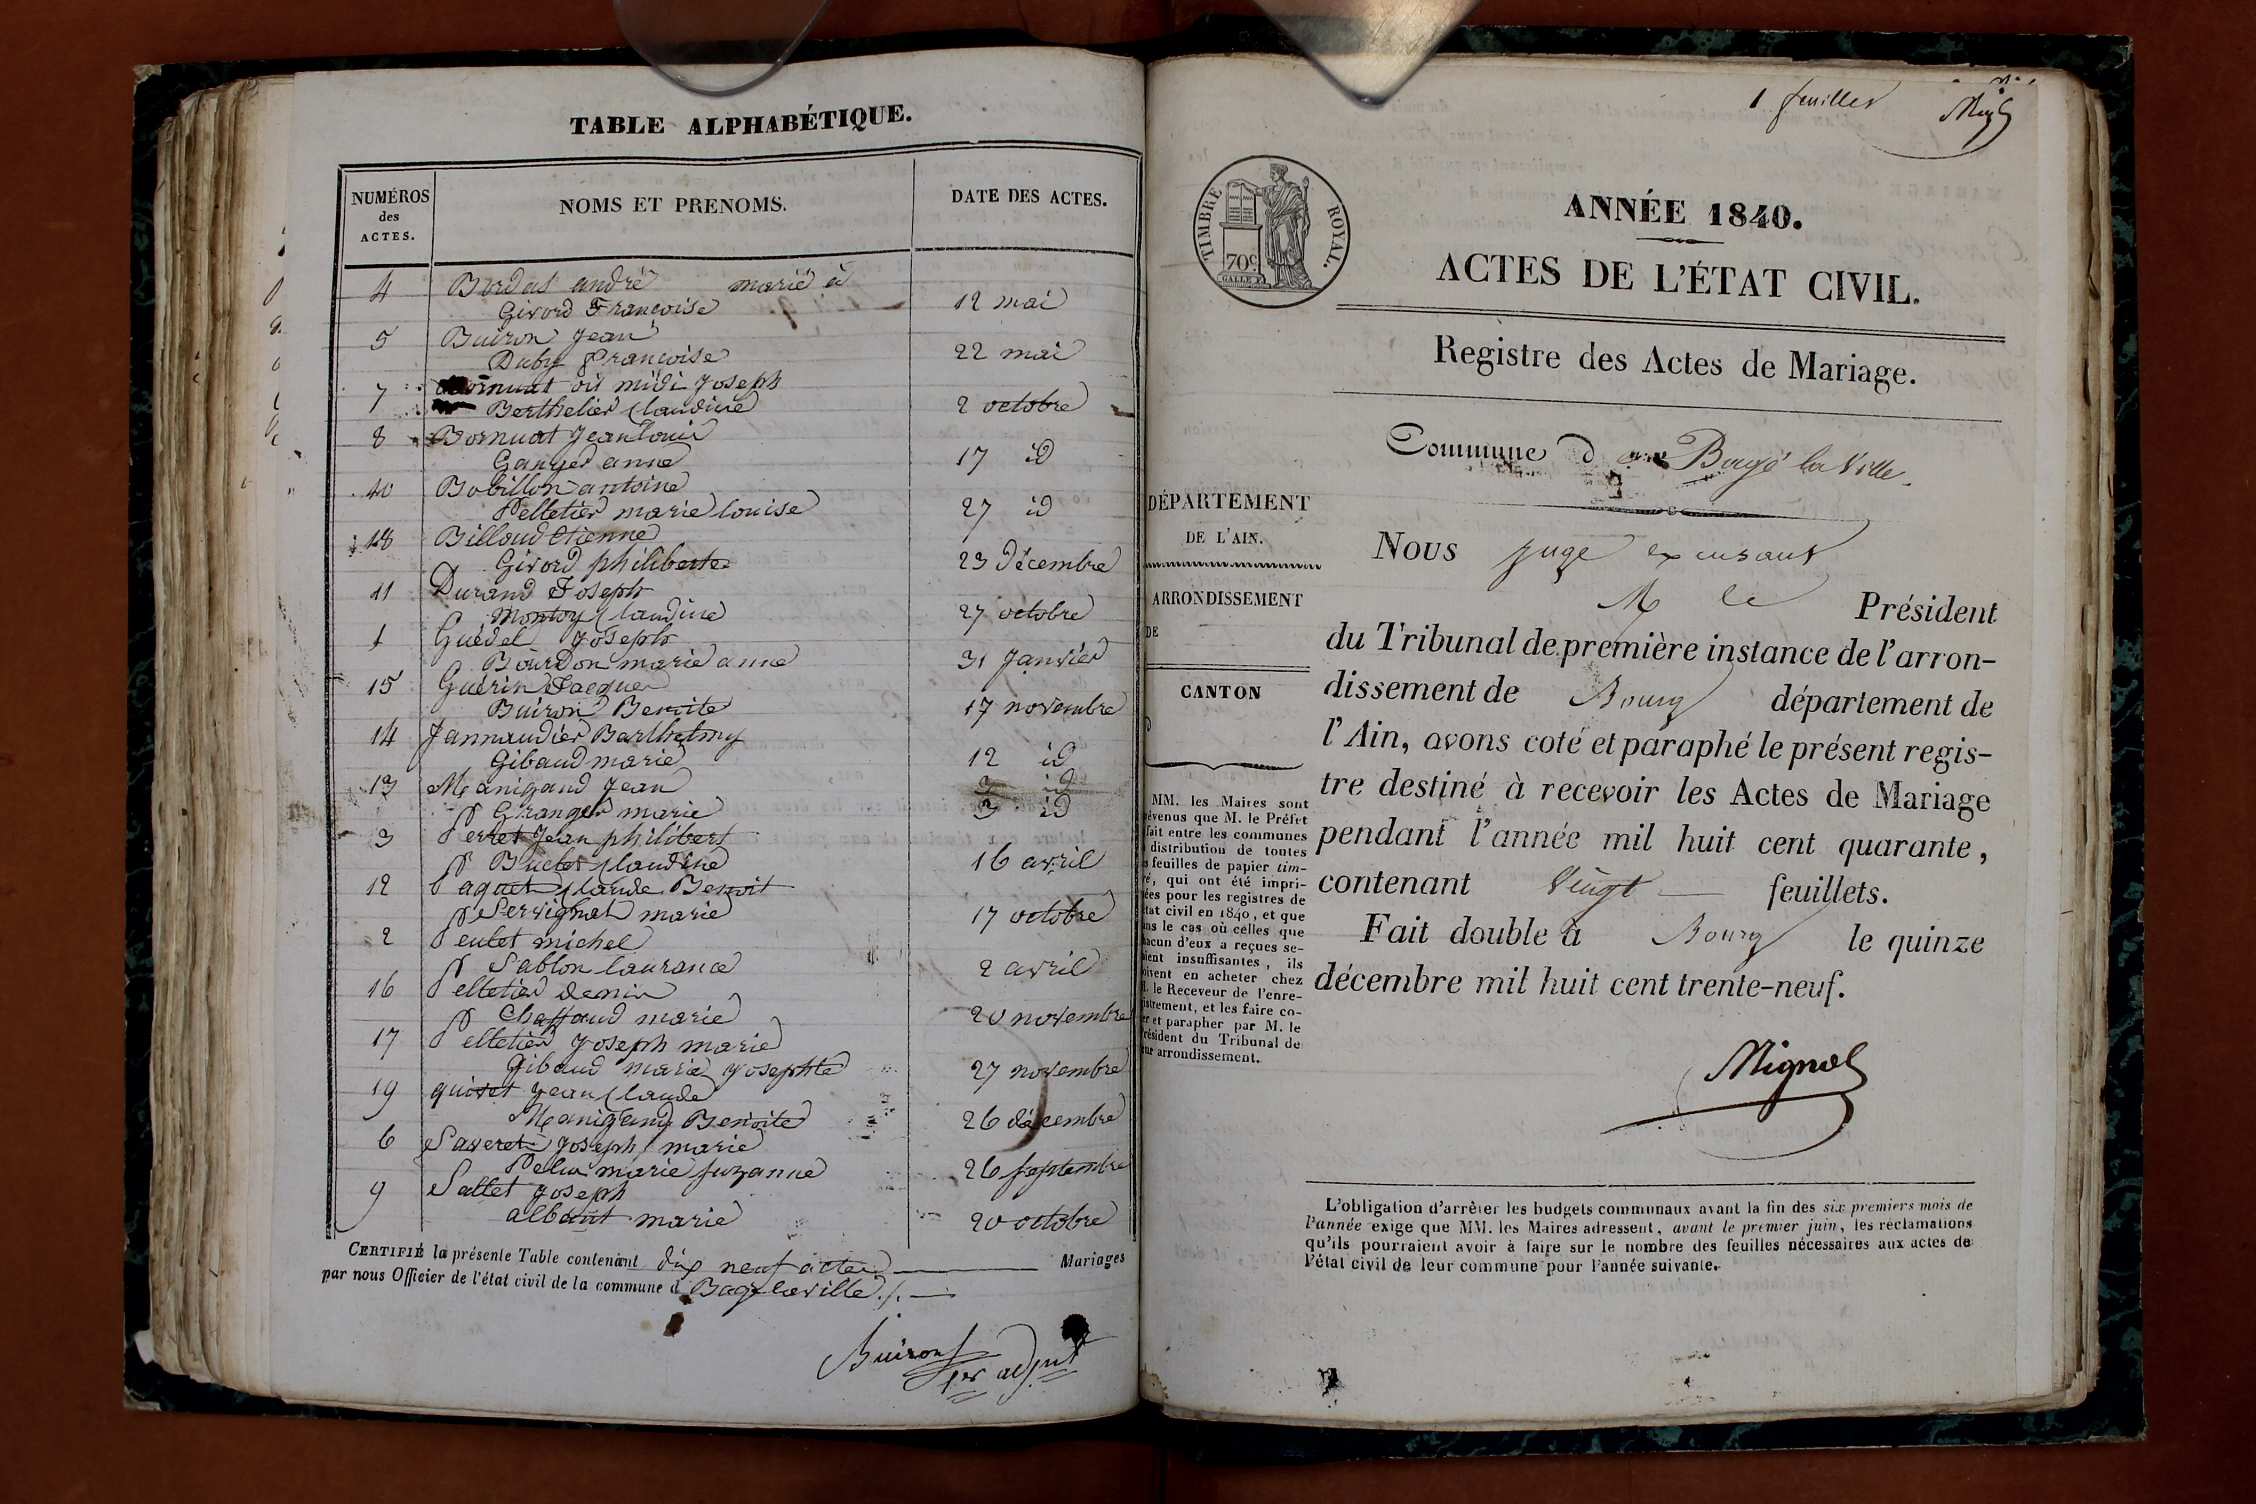 TABLE ALPHABÉTIQUE.
NUMÉROS des ACTES.
NOMS ET PRENOMS.
DATE DES ACTES.
4 Bordat andré marié à
Givord Françoise 12 mai
5 Buiron Jean
Duby Françoise 22 mai
7 dit midi Joseph
Berthelier Claudine 2 octobre
8 Bornuat Jean Louis
Ganger anne 17 id
10 Bobillon antoine
Pelletier marie louise 27 id
18 Billoud Etienne
Givord philiberte 23 Décembre
11 Durand Joseph
Montoy Claudine 27 octobre
1 Guédel Joseph
Bourdon marie anne 31 Janvier
15 Guérin Jacques
Buiron Benoite 17 novembre
14 Jannaudier Barthelmy
Gibaud marie 12 id
13 Manigand Jean 3 id
Granger marie 3 id
3 Perret Jean philibert
Buclet Claudine 16 avril
12 Paquet Claude Benoit
Servignat marie 17 octobre
2 Peulet michel
Sablon laurance 2 avril
16 Pelletier denis
Chaffaud marie 20 novembre
17 Pelletier Joseph marie
Gibaud marie Josephte 27 novembre
19 quivet Jean Claude
Manigand Benoite 26 décembre
6 Saveret Joseph marie
Pelus marie suzanne 26 septembre
9 Sallet Joseph
albant marie 20 octobre
CERTIFIÉ la présente Table contenant dix neuf actes Mariages
par nous Officier de l'état civil de la commune d Bagé laville ./.
Buiron
1er adjnt
1 feuillet
TIMBRE ROYAL.
70c
ANNÉE 1840.
ACTES DE L'ÉTAT CIVIL.
Registre des Actes de Mariage.
Commune d Bagé la Ville
DÉPARTEMENT
DE L'AIN.
ARRONDISSEMENT
DE
CANTON
D
MM. les Maires sont
évenus que M. le Préfet
fait entre les communes
distribution de toutes
s feuilles de papier tim-
ré, qui ont été impri-
ées pour les registres de
état civil en 1840, et que
ans le cas où celles que
hacun d'eux a reçues se-
aient insuffisantes, ils
oivent en acheter chez
. le Receveur de l'enre-
istrement, et les faire co-
er et parapher par M. le
résident du Tribunal de
eur arrondissement.
Nous juge excusant
M le Président
du Tribunal de première instance de l'arron-
dissement de Bourg département de
l'Ain, avons coté et paraphé le présent regis-
tre destiné à recevoir les Actes de Mariage
pendant l'année mil huit cent quarante,
contenant Vingt feuillets.
Fait double à Bourg le quinze
décembre mil huit cent trente-neuf.
Mignol
L'obligation d'arrêter les budgets communaux avant la fin des six premiers mois de
l'année exige que MM. les Maires adressent, avant le premier juin, les réclamations
qu'ils pourraient avoir à faire sur le nombre des feuilles nécessaires aux actes de
l'état civil de leur commune pour l'année suivante.